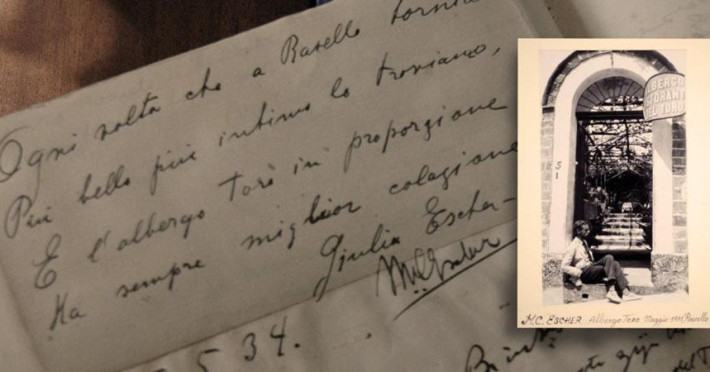 Ogni volta che a Ravello torniamo
Più bello più intimo lo troviamo,
E l'albergo Toro in proporzione
Ha sempre miglior colazione
Giulia Escher-
MCEscher
5 34.
ALBERGO
RISTORANTE
DEL TORO
M.C. ESCHER Albergo Toro Maggio Ravello